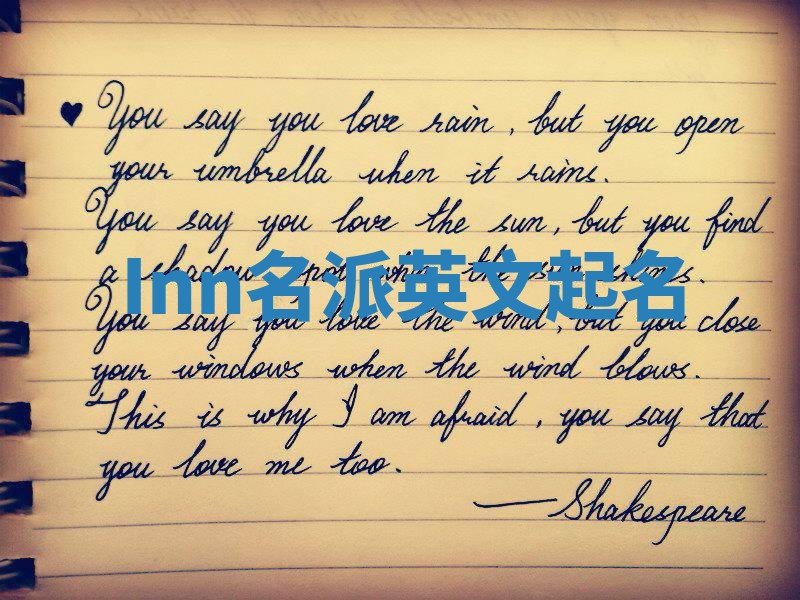 ♥ You say you love rain, but you open
your umbrella when it rains.
You say you love the sun, but you find
a shadow spot when the sun shines.
Inn名派英文起名
You say you love the wind, but you close
your windows when the wind blows.
This is why I am afraid, you say that
you love me too.
—Shakespeare